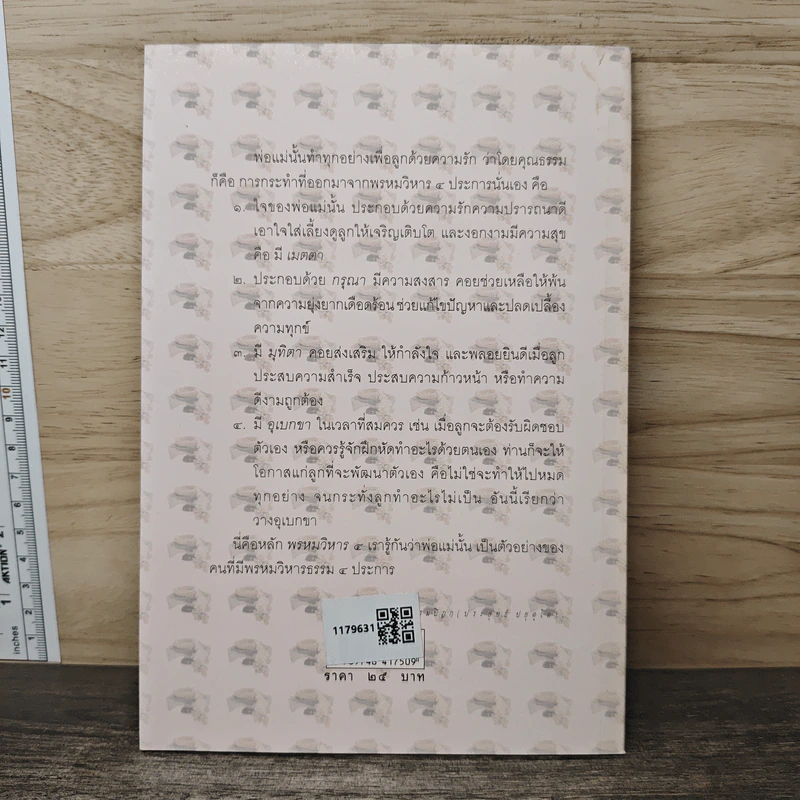 พ่อแม่นั้นทำทุกอย่างเพื่อลูกด้วยความรัก ว่าโดยคุณธรรม
ก็คือ การกระทำที่ออกมาจากพรหมวิหาร ๔ ประการนั่นเอง คือ
๑. ใจของพ่อแม่นั้น ประกอบด้วยความรักความปรารถนาดี
เอาใจใส่เลี้ยงดูลูกให้เจริญเติบโต และงอกงามมีความสุข
คือ มี เมตตา
๒. ประกอบด้วย กรุณา มีความสงสาร คอยช่วยเหลือให้พ้น
จากความยุ่งยากเดือดร้อน ช่วยแก้ไขปัญหาและปลดเปลื้อง
ความทุกข์
๓. มี มุทิตา คอยส่งเสริม ให้กำลังใจ และพลอยยินดีเมื่อลูก
ประสบความสำเร็จ ประสบความก้าวหน้า หรือทำความ
ดีงามถูกต้อง
๔. มี อุเบกขา ในเวลาที่สมควร เช่น เมื่อลูกจะต้องรับผิดชอบ
ตัวเอง หรือควรรู้จักฝึกหัดทำอะไรด้วยตนเอง ท่านก็จะให้
โอกาสแก่ลูกที่จะพัฒนาตัวเอง คือไม่ใช่จะทำให้ไปหมด
ทุกอย่าง จนกระทั่งลูกทำอะไรไม่เป็น อันนี้เรียกว่า
วางอุเบกขา
นี่คือหลัก พรหมวิหาร ๔ เรารู้กันว่าพ่อแม่นั้น เป็นตัวอย่างของ
คนที่มีพรหมวิหารธรรม ๔ ประการ
1179631
417509
ราคา ๒๕ บาท
inches
AKTION